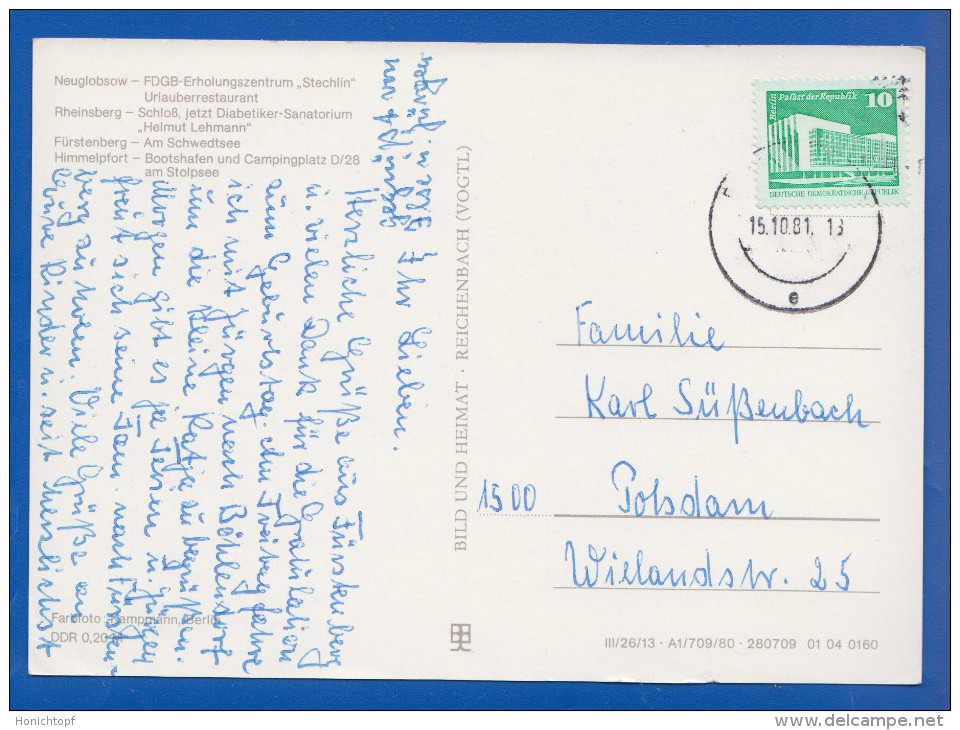 Neuglobsow – FDGB-Erholungszentrum „Stechlin"
Urlauberrestaurant
Rheinsberg – Schloß, jetzt Diabetiker-Sanatorium
„Helmut Lehmann"
Fürstenberg – Am Schwedtsee
Himmelpfort – Bootshafen und Campingplatz D/28
am Stolpsee
Ihr Lieben.
Herzliche Grüße aus Fürstenberg
u. vielen Dank für die Gratulation
zum Geburtstag. Am Freitag fahre
ich mit Jürgen nach Böhlendorf
um die kleine Katja zu begrüßen.
Morgen gibt es ja Ferien u. Jürgen
freut sich seine Fam. nach Fürsten-
berg zu holen. Viele Grüße an
Eure Kinder u. seit herzlichst
Farbfoto: Kampmann, Berlin
DDR 0,20 M
BILD UND HEIMAT · REICHENBACH (VOGTL)
Berlin Palast der Republik 10
DEUTSCHE DEMOKRATISCHE REPUBLIK
15.10.81. 13
e
Familie
Karl Süßenbach
1500 Potsdam
Wielandstr. 25
III/26/13 · A1/709/80 · 280709 01 04 0160
Honichtopf
www.delcampe.net